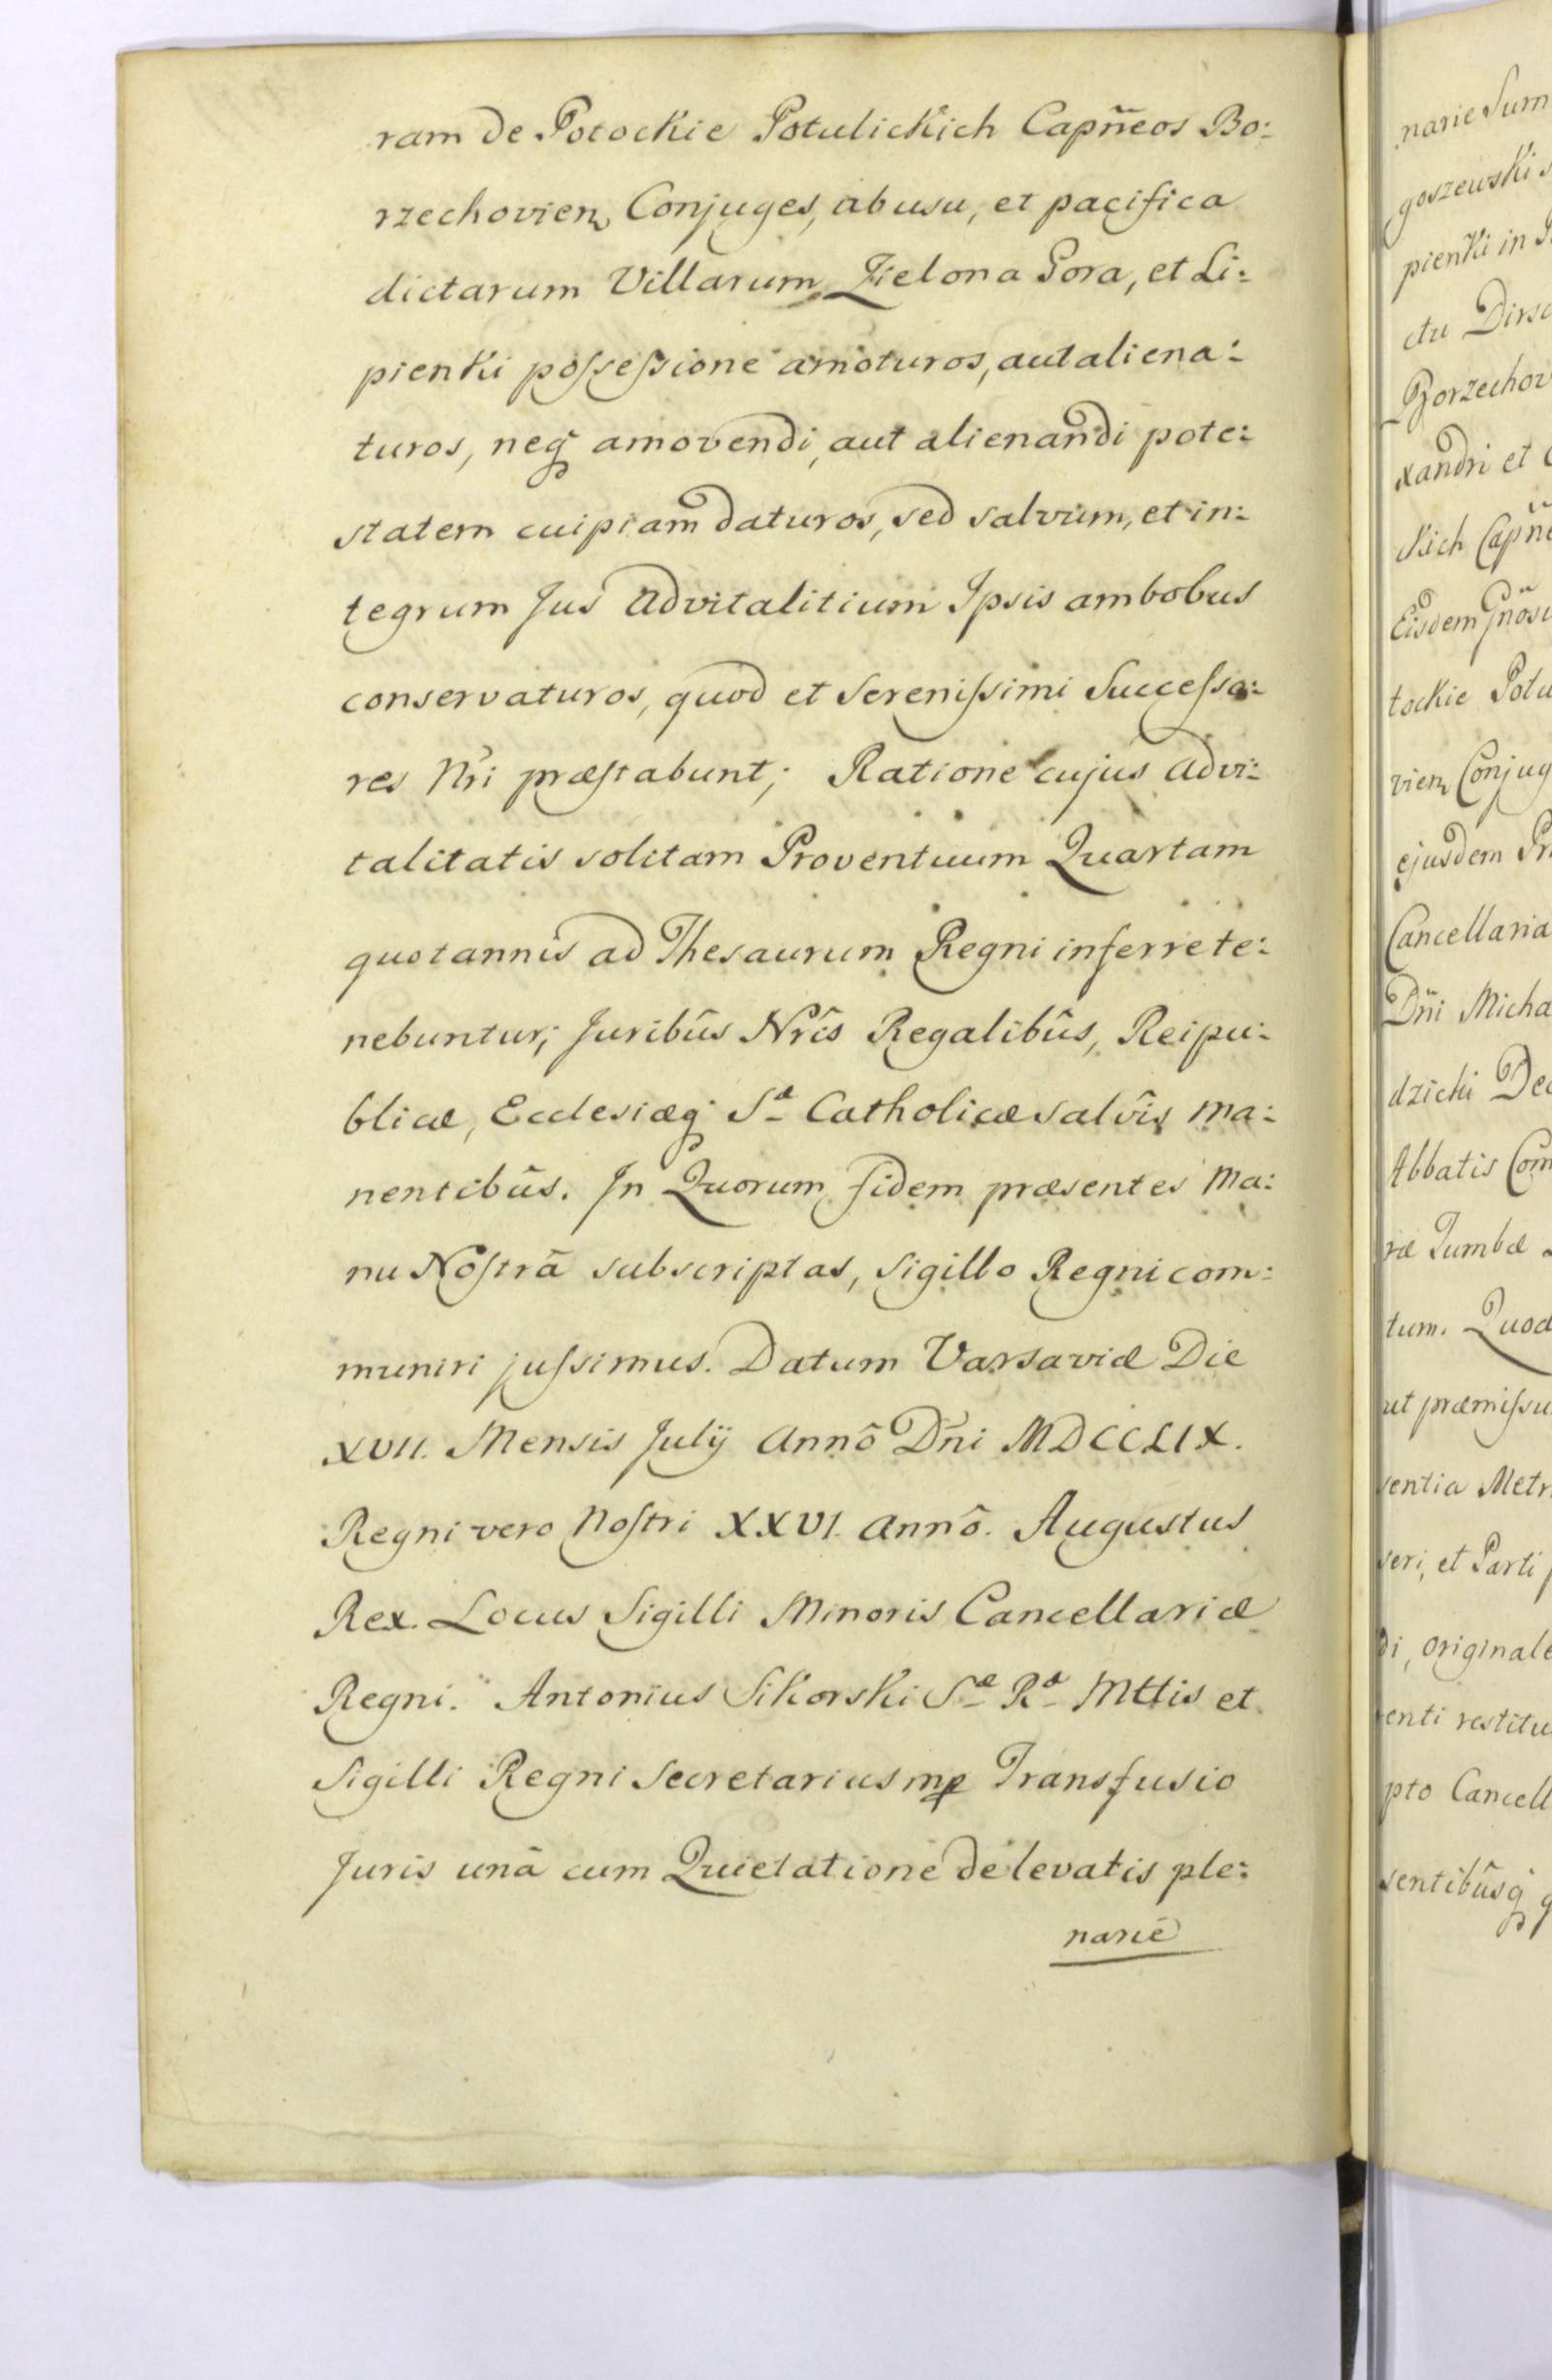 ram de Potockie Potulickich Capñeos Bo:
rzechovien Conjuges, ab usu, et pacifica
dictarum Villarum Zielona Gora, et Li:
pienki possessione amoturos, aut aliena:
turos, neq amovendi, aut alienandi pote:
statem cuipiam daturos, sed salvum, et in:
tegrum Jus Advitalitium Ipsis ambobus
conservaturos, quod et Serenissimi Successo:
res Nri præstabunt; Ratione cujus Advi:
talitatis solitam Proventuum Quartam
quotannis ad Thesaurum Regni inferre te:
nebuntur; Juribûs Nrîs Regalibûs, Reipu:
blicæ, Ecclesiæq Sæ Catholicæ salvîs ma:
nentibûs. In Quorum fidem præsentes Ma:
nu Nostrâ subscriptas, Sigillo Regni com:
muniri jussimus. Datum Varsaviæ Die
XVII. Mensis Julij Annô Dñi MDCCLIX.
Regni vero Nostri XXVI. Annô. Augustus
Rex. Locus Sigilli Minoris Cancellariæ
Regni. Antonius Sikorski Sæ Ræ Mttis et
Sigilli Regni Secretarius mp Transfusio
Juris unâ cum Quietatione de levatis ple:
narie
narie Sum
goszewski
pienki in
ctu Dirs
Borzechov
xandri et
ckich Capñe
Eisdem Gñosi
tockie Potu
vien Conjug
ejusdem Pr
Cancellaria
Dñi Micha
dzicki Dec
Abbatis Com
ræ Tumbæ
tum. Quod
ut præmissu
sentia Metr
seri, et Parti
di, originale
enti restitu
pto Cancell
sentibûsq